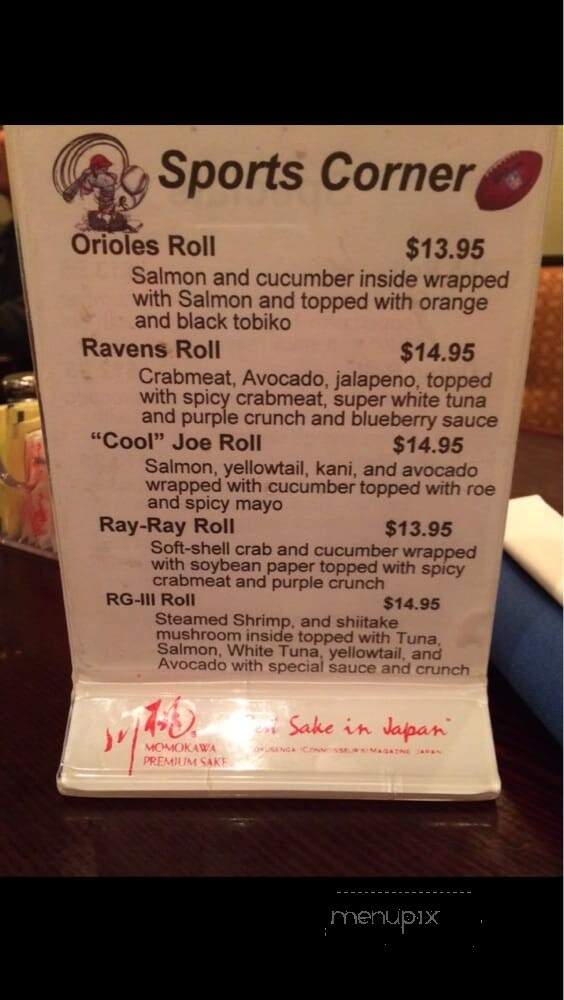 Sports Corner
Orioles Roll $13.95
Salmon and cucumber inside wrapped
with Salmon and topped with orange
and black tobiko
Ravens Roll $14.95
Crabmeat, Avocado, jalapeno, topped
with spicy crabmeat, super white tuna
and purple crunch and blueberry sauce
“Cool” Joe Roll $14.95
Salmon, yellowtail, kani, and avocado
wrapped with cucumber topped with roe
and spicy mayo
Ray-Ray Roll $13.95
Soft-shell crab and cucumber wrapped
with soybean paper topped with spicy
crabmeat and purple crunch
RG-III Roll $14.95
Steamed Shrimp, and shiitake
mushroom inside topped with Tuna,
Salmon, White Tuna, yellowtail, and
Avocado with special sauce and crunch
Sake in Japan"
MOMOKAWA
PREMIUM SAKE
MAGAZINE JAPAN
menupix